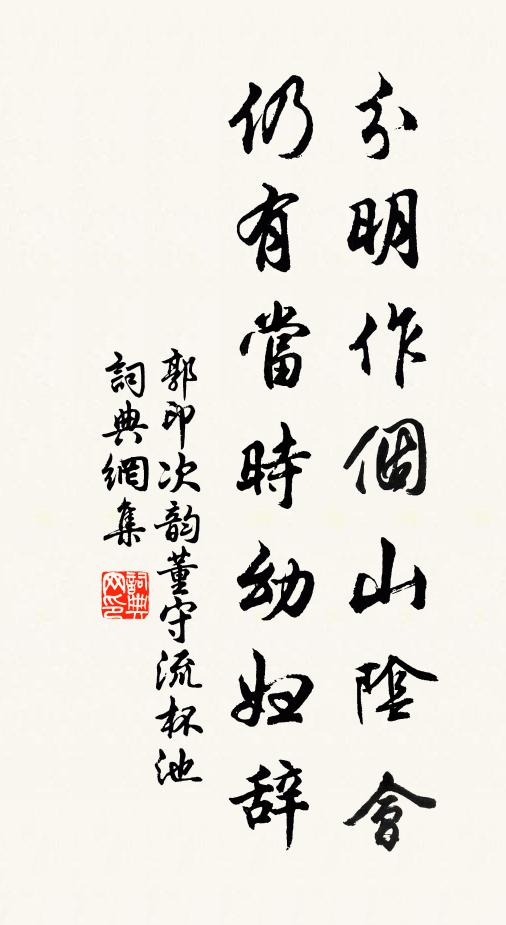 分明作個山陰會
仍有當時幼婦辞
郭印次韵董守流杯池
詞典網集
詞典网印